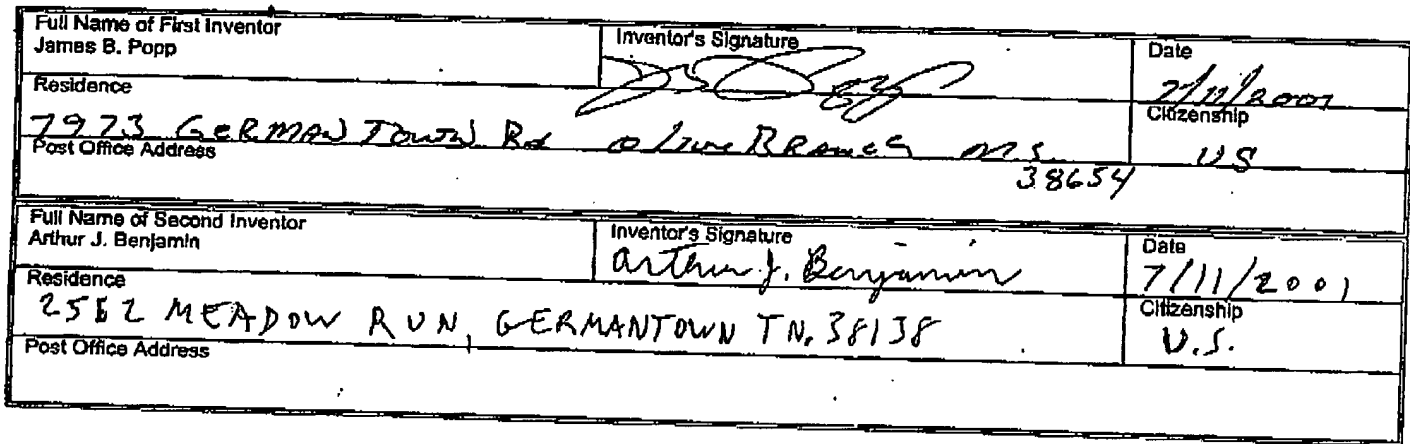 Full Name of First Inventor
James B. Popp
Inventor's Signature
Date
7/11/2001
Residence
7973 GERMANTOWN Rd Olive BRANCH MS.
38654
Citizenship
US
Post Office Address
Full Name of Second Inventor
Arthur J. Benjamin
Inventor's Signature
Arthur J. Benjamin
Date
7/11/2001
Residence
MEADOW RUN, GERMANTOWN TN. 38138
Citizenship
U.S.
Post Office Address